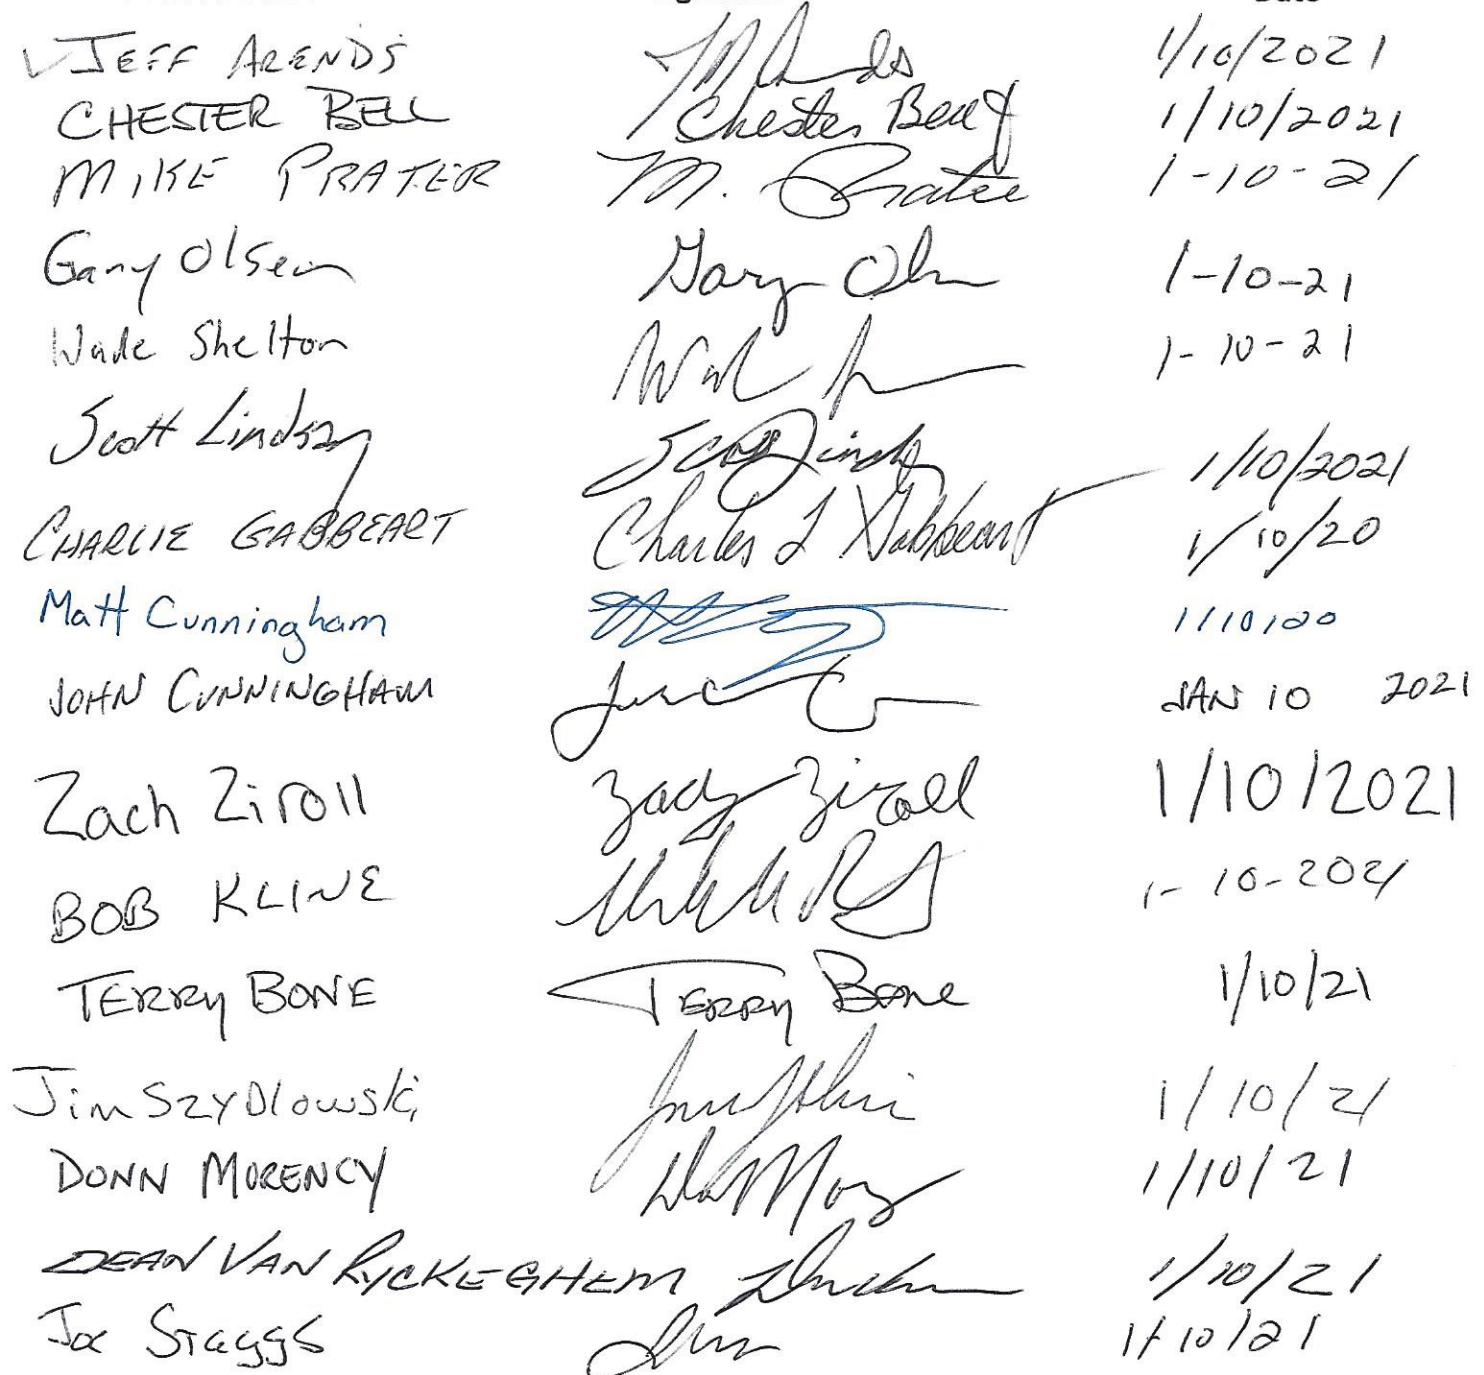 Date
JEFF ARENDS 1/10/2021
CHESTER BELL Chester Bell 1/10/2021
MIKE PRATER M. Prater 1-10-21
Gary Olsen Gary Olsen 1-10-21
Wade Shelton 1-10-21
Scott Lindsay Scott Lindsay 1/10/2021
CHARLIE GABBEART Charles L Gabbeart 1/10/20
Matt Cunningham 1/10/20
JOHN CUNNINGHAM JAN 10 2021
Zach Ziroll Zach Ziroll 1/10/2021
BOB KLINE 1-10-2021
TERRY BONE TERRY BONE 1/10/21
Jim SzyDlowski 1/10/21
DONN MORENCY 1/10/21
DEAN VAN RYCKEGHEM 1/10/21
Joe Staggs 1/10/21